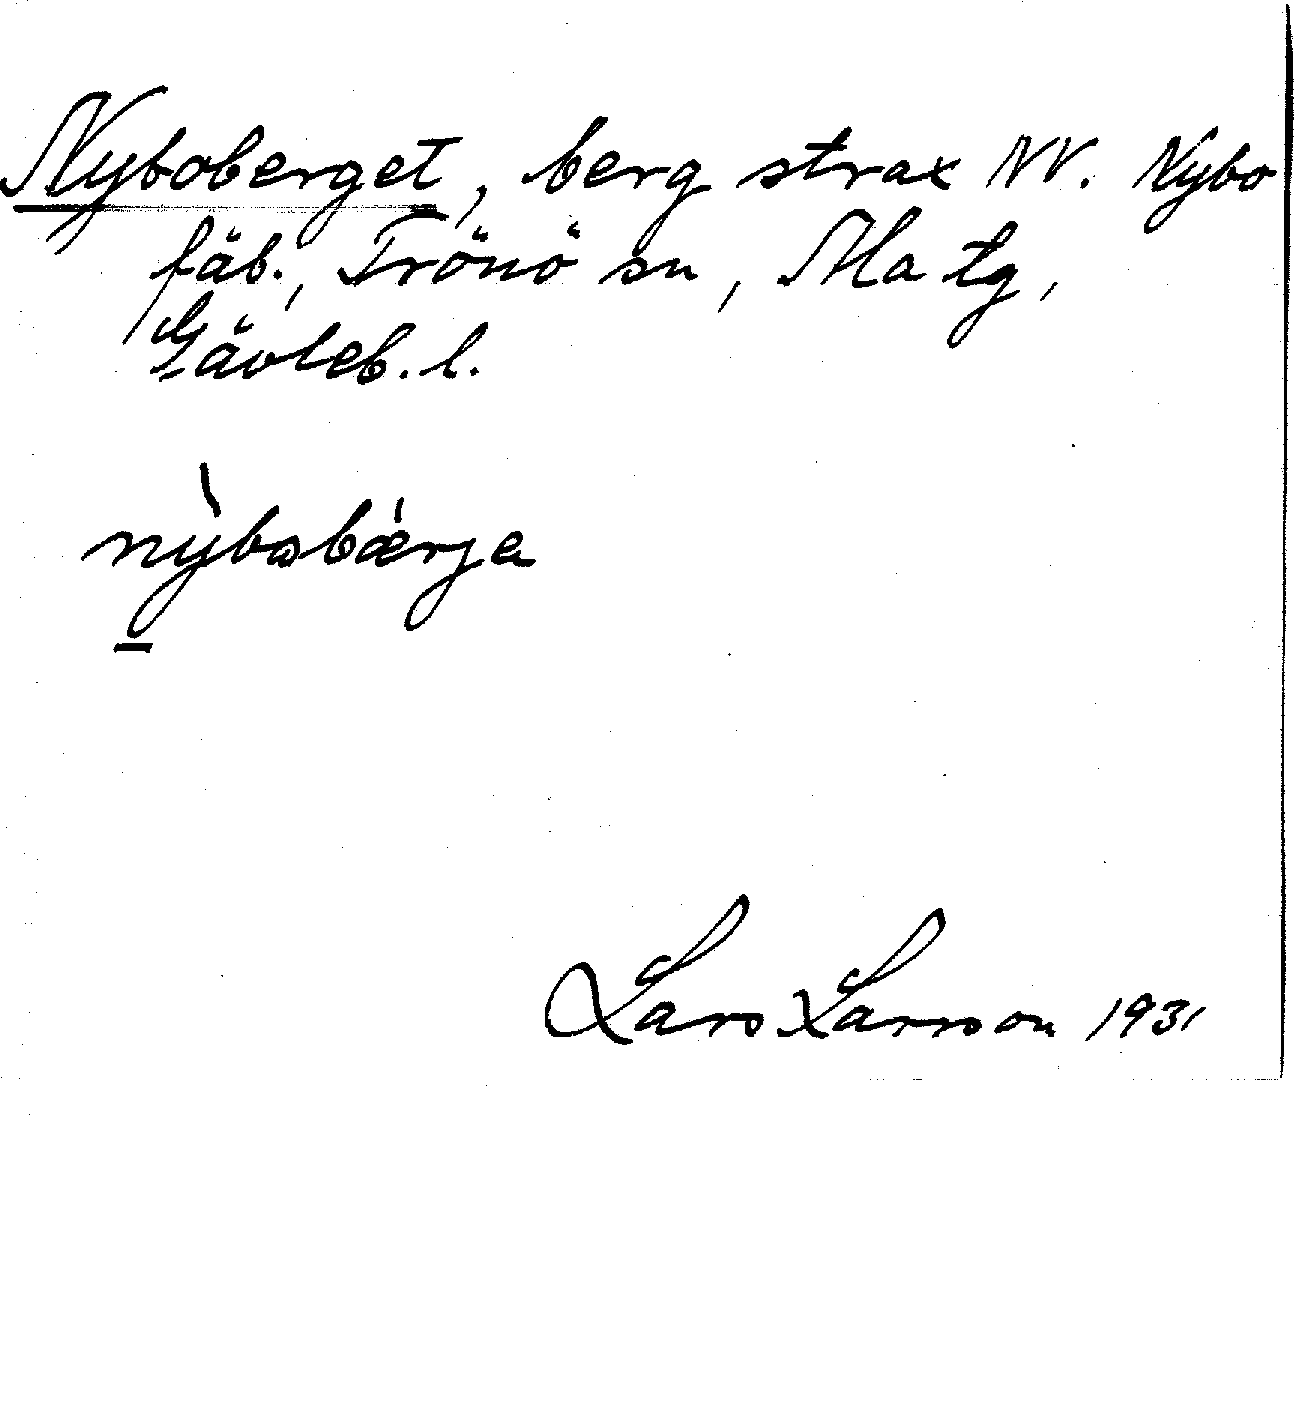 Nyboberget, berg strax NV. Nybo
fäb., Trönö sn, Ala tg,
Gävleb. l.
nỳbobǽrja
Lars Larsson 1931